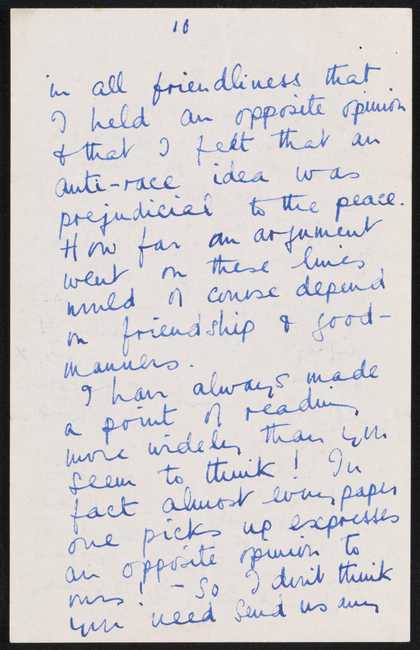 10
in all friendliness that
I held an opposite opinion
& that I felt that an
anti-race idea was
prejudicial to the peace.
How far an argument
went on these lines
would of course depend
on friendship & good-
manners.
I have always made
a point of reading
more widely than you
seem to think! In
fact almost every paper
one picks up expresses
an opposite opinion to
ours! - So I don't think
you need send us any